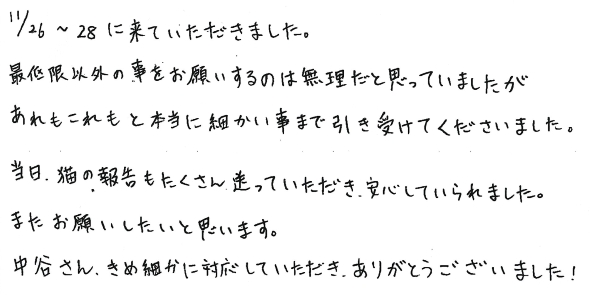 11/26 ~ 28 に来ていただきました。
最低限以外の事をお願いするのは無理だと思っていましたが
あれもこれもと本当に細かい事まで引き受けてくださいました。
当日、猫の報告もたくさん送っていただき、安心していられました。
またお願いしたいと思います。
中谷さん、きめ細かに対応していただき、ありがとうございました!